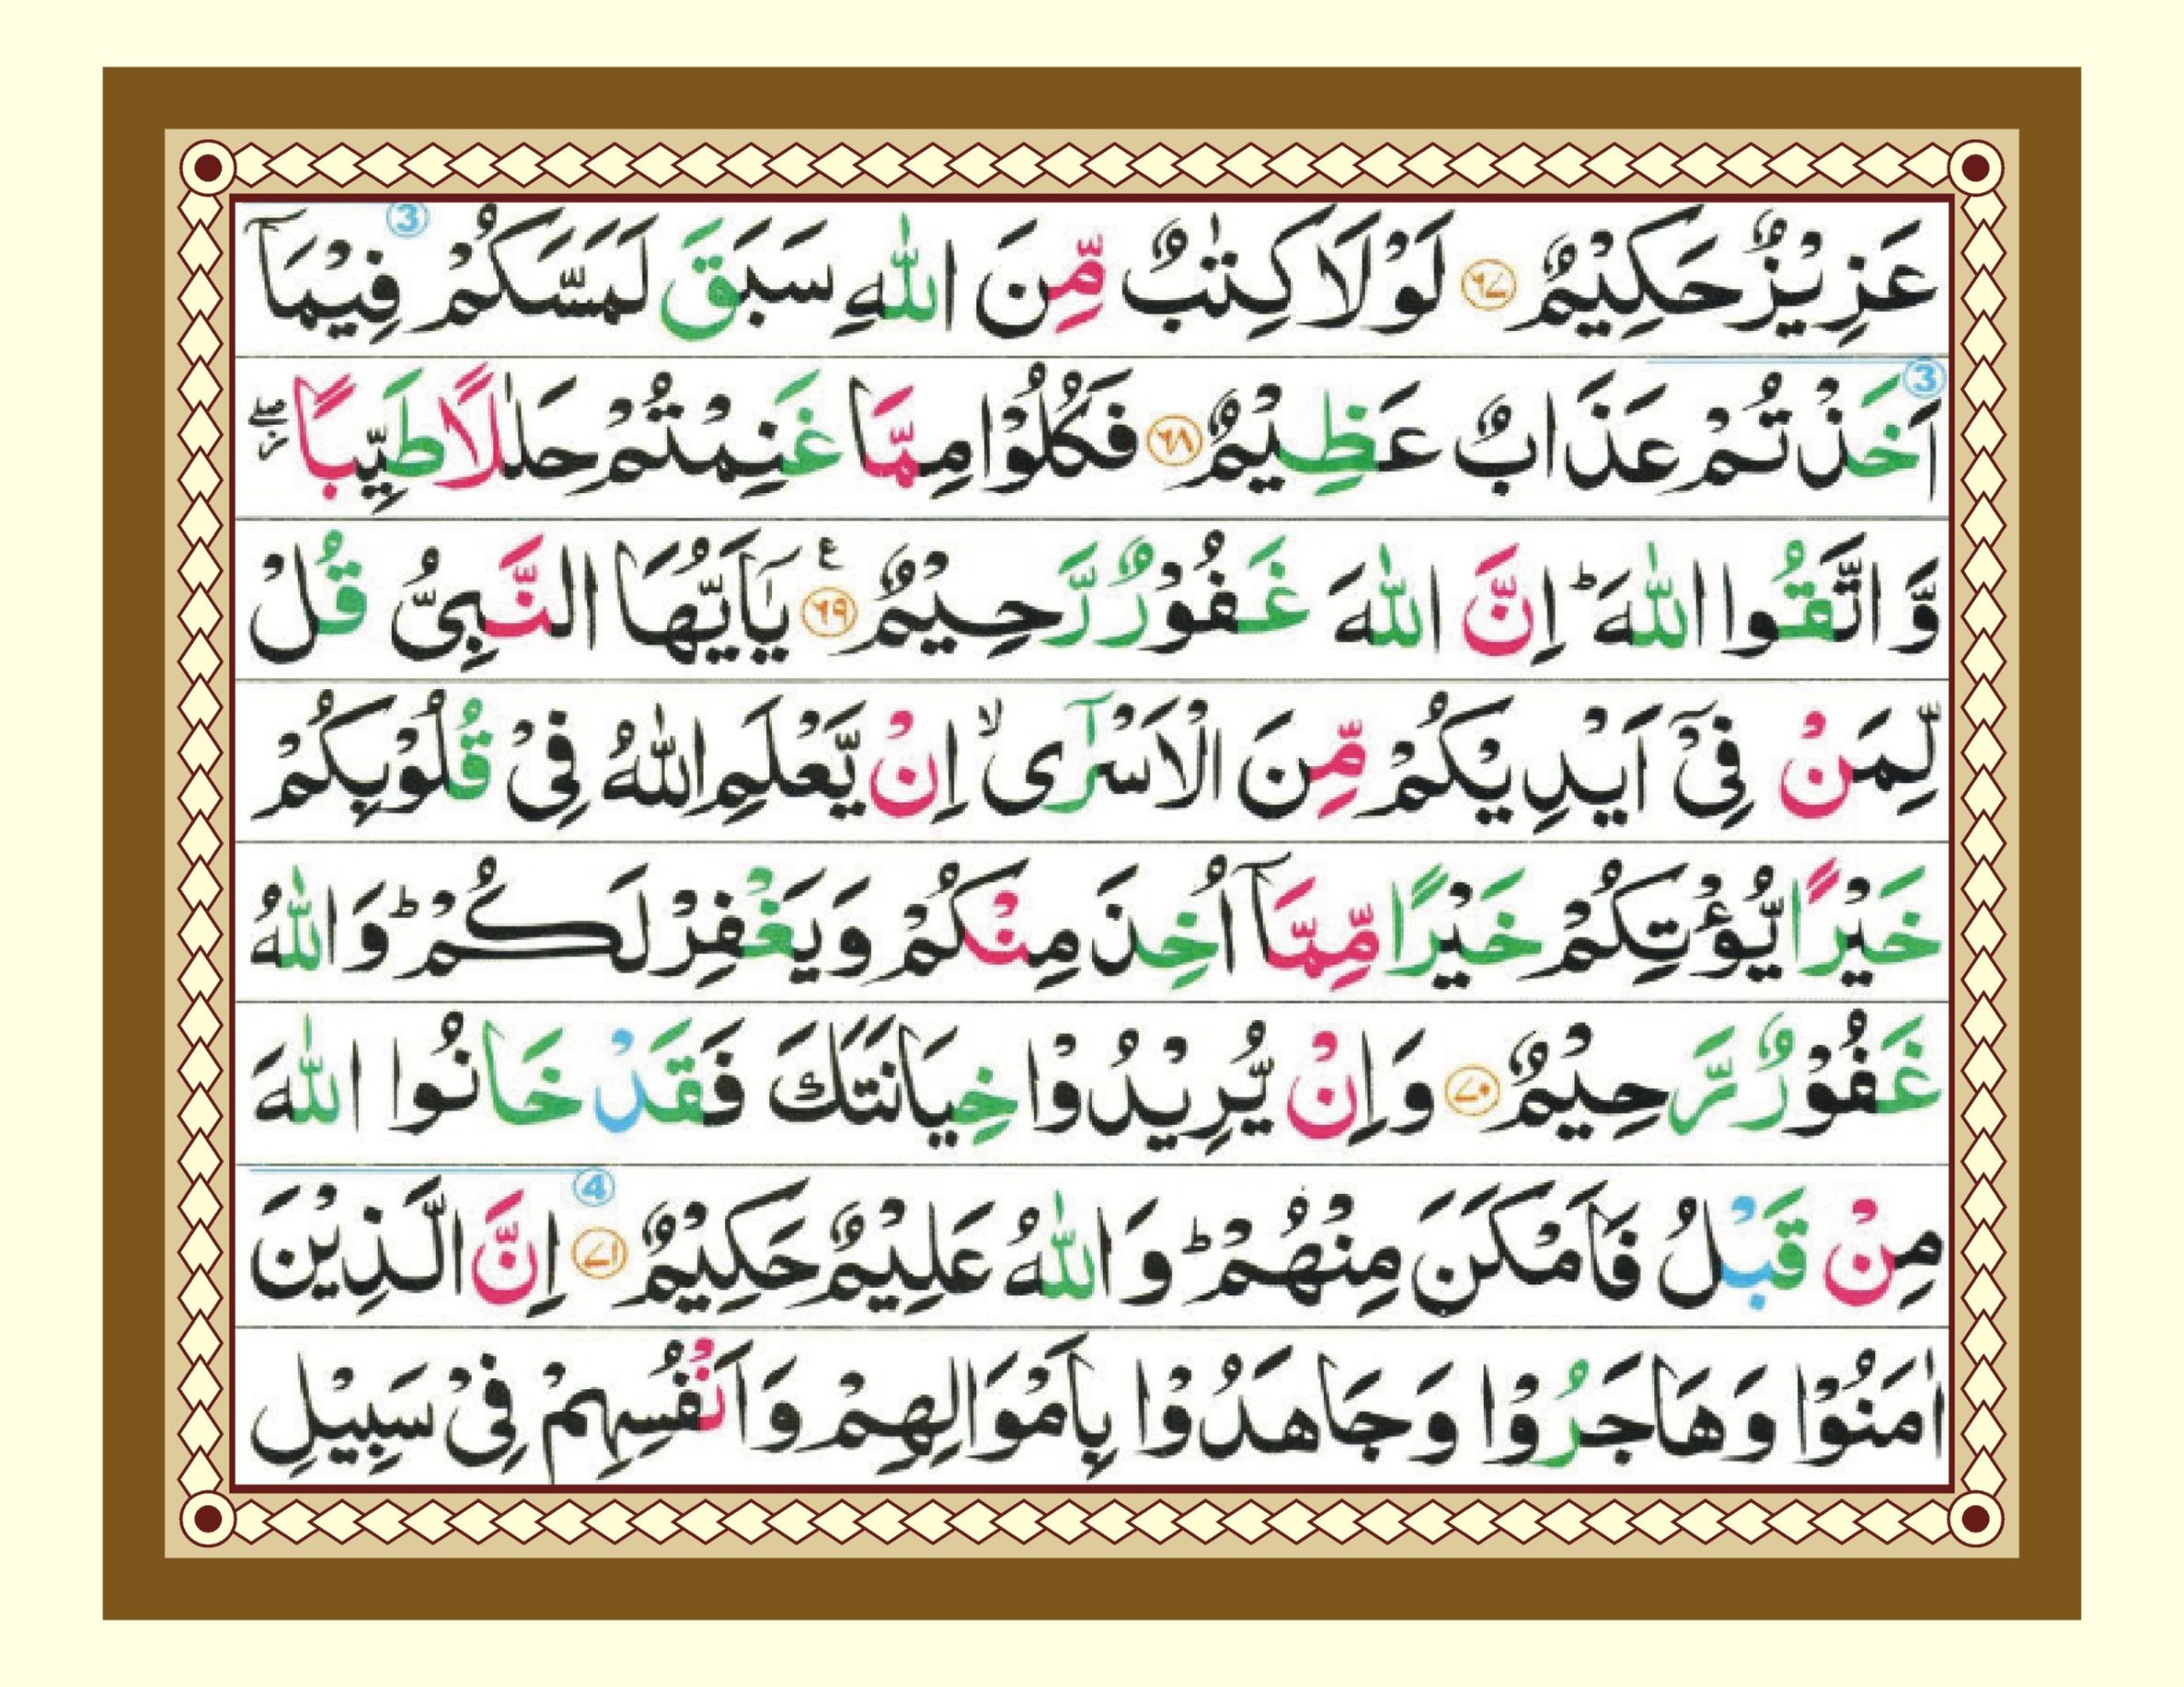 ③
عَزِيْزٌ حَكِيْمٌ ۝٦٧ لَوْلَا كِتٰبٌ مِّنَ اللّٰهِ سَبَقَ لَمَسَّكُمْ فِيْمَاۤ
③
اَخَذْتُمْ عَذَابٌ عَظِيْمٌ ۝٦٨ فَكُلُوْا مِمَّا غَنِمْتُمْ حَلٰلًا طَيِّبًا ۖ ز
وَّاتَّقُوا اللّٰهَ ؕ اِنَّ اللّٰهَ غَفُوْرٌ رَّحِيْمٌ ۝٦٩ ع يٰۤاَيُّهَا النَّبِىُّ قُلْ
لِّمَنْ فِىْۤ اَيْدِيْكُمْ مِّنَ الْاَسْرٰٓى ۙ اِنْ يَّعْلَمِ اللّٰهُ فِىْ قُلُوْبِكُمْ
خَيْرًا يُّؤْتِكُمْ خَيْرًا مِّمَّاۤ اُخِذَ مِنْكُمْ وَيَغْفِرْ لَكُمْ ؕ وَاللّٰهُ
غَفُوْرٌ رَّحِيْمٌ ۝٧٠ وَاِنْ يُّرِيْدُوْا خِيَانَتَكَ فَقَدْ خَانُوا اللّٰهَ
④
مِنْ قَبْلُ فَاَمْكَنَ مِنْهُمْ ؕ وَاللّٰهُ عَلِيْمٌ حَكِيْمٌ ۝٧١ اِنَّ الَّذِيْنَ
اٰمَنُوْا وَهَاجَرُوْا وَجَاهَدُوْا بِاَمْوَالِهِمْ وَاَنْفُسِهِمْ فِىْ سَبِيْلِ